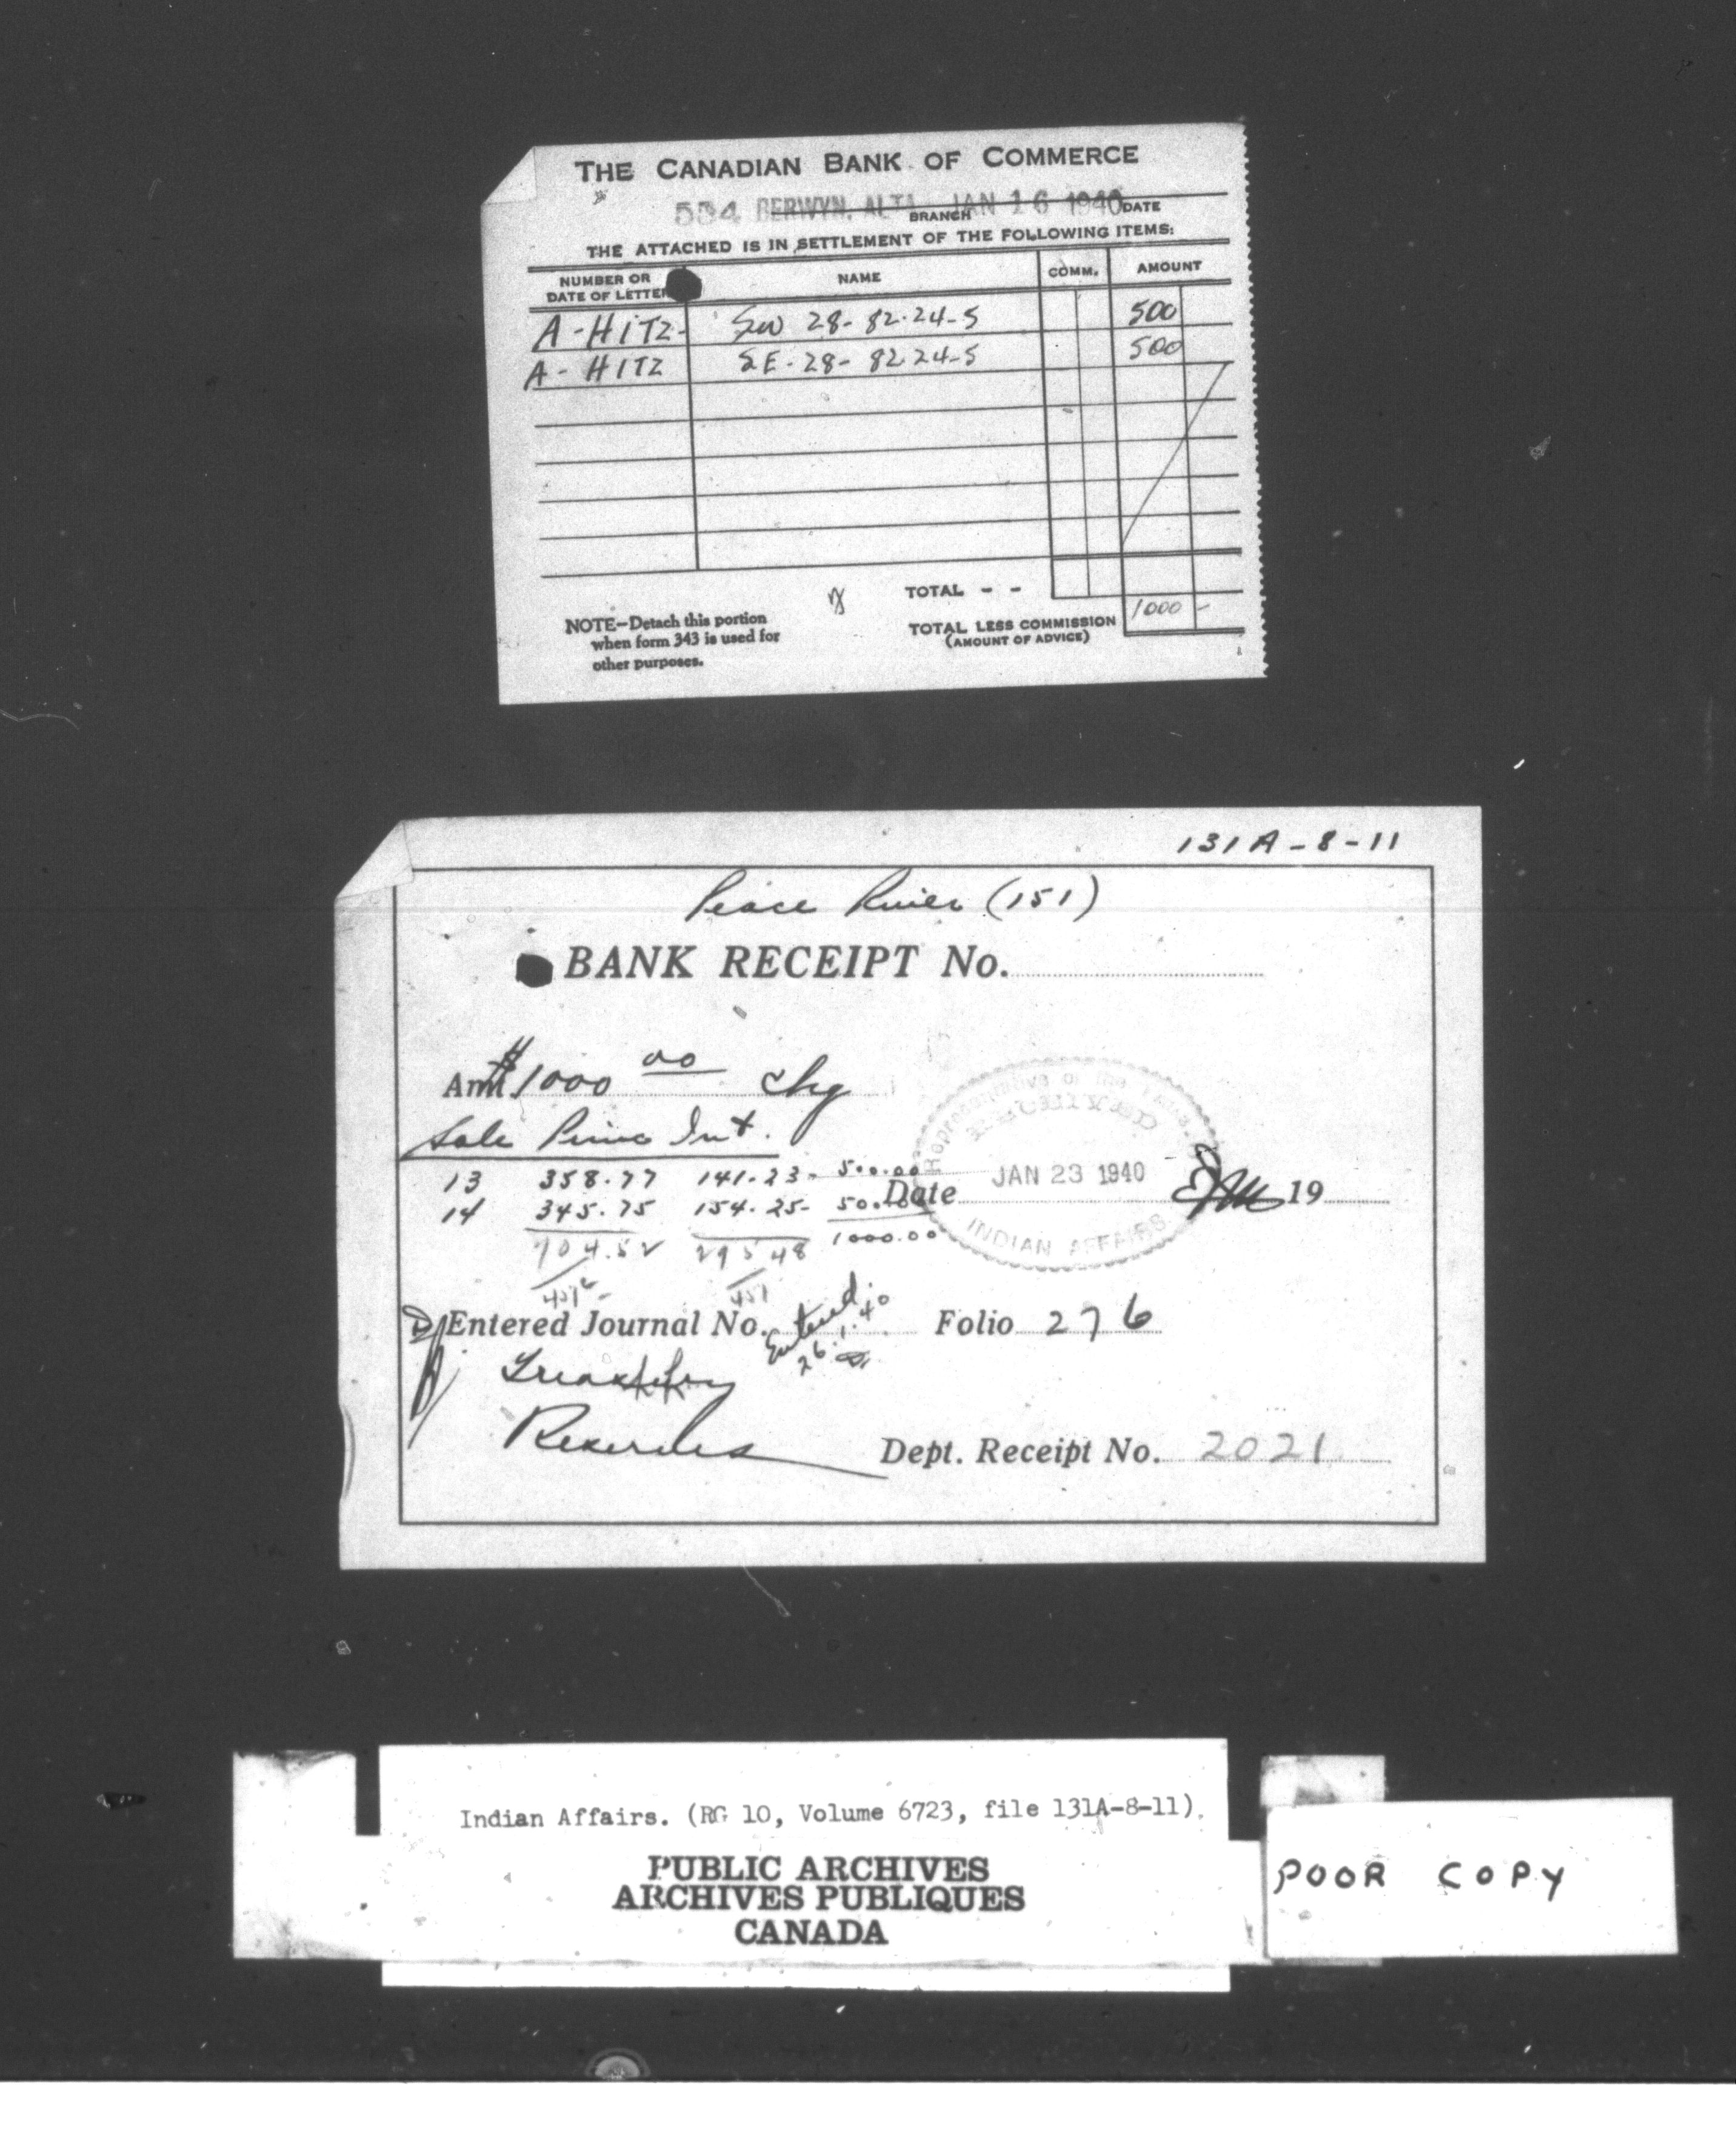 THE CANADIAN BANK OF COMMERCE
534 BERWYN, ALTA. JAN 16 1940
BRANCH DATE
THE ATTACHED IS IN SETTLEMENT OF THE FOLLOWING ITEMS:
NUMBER OR DATE OF LETTER NAME COMM. AMOUNT
A-HITZ- SW 28-82-24-5 500
A-HITZ SE-28-82 24-5 500
TOTAL - -
1000 -
NOTE—Detach this portion
when form 343 is used for
other purposes.
TOTAL LESS COMMISSION
(AMOUNT OF ADVICE)
131A-8-11
Peace River (151)
BANK RECEIPT No.
Amt $1000 00 chq
Sale Princ Int.
13 358.77 141.23- 500.00
14 345.75 154.25- 500.00
704.52 295 48 1000.00
Representative of the Treasury
RECEIVED
JAN 23 1940
INDIAN AFFAIRS
Date 19
Entered Journal No. Folio 276
Entered
26.1.40
Dept. Receipt No. 2021
Indian Affairs. (RG 10, Volume 6723, file 131A-8-11)
PUBLIC ARCHIVES
ARCHIVES PUBLIQUES
CANADA
POOR COPY